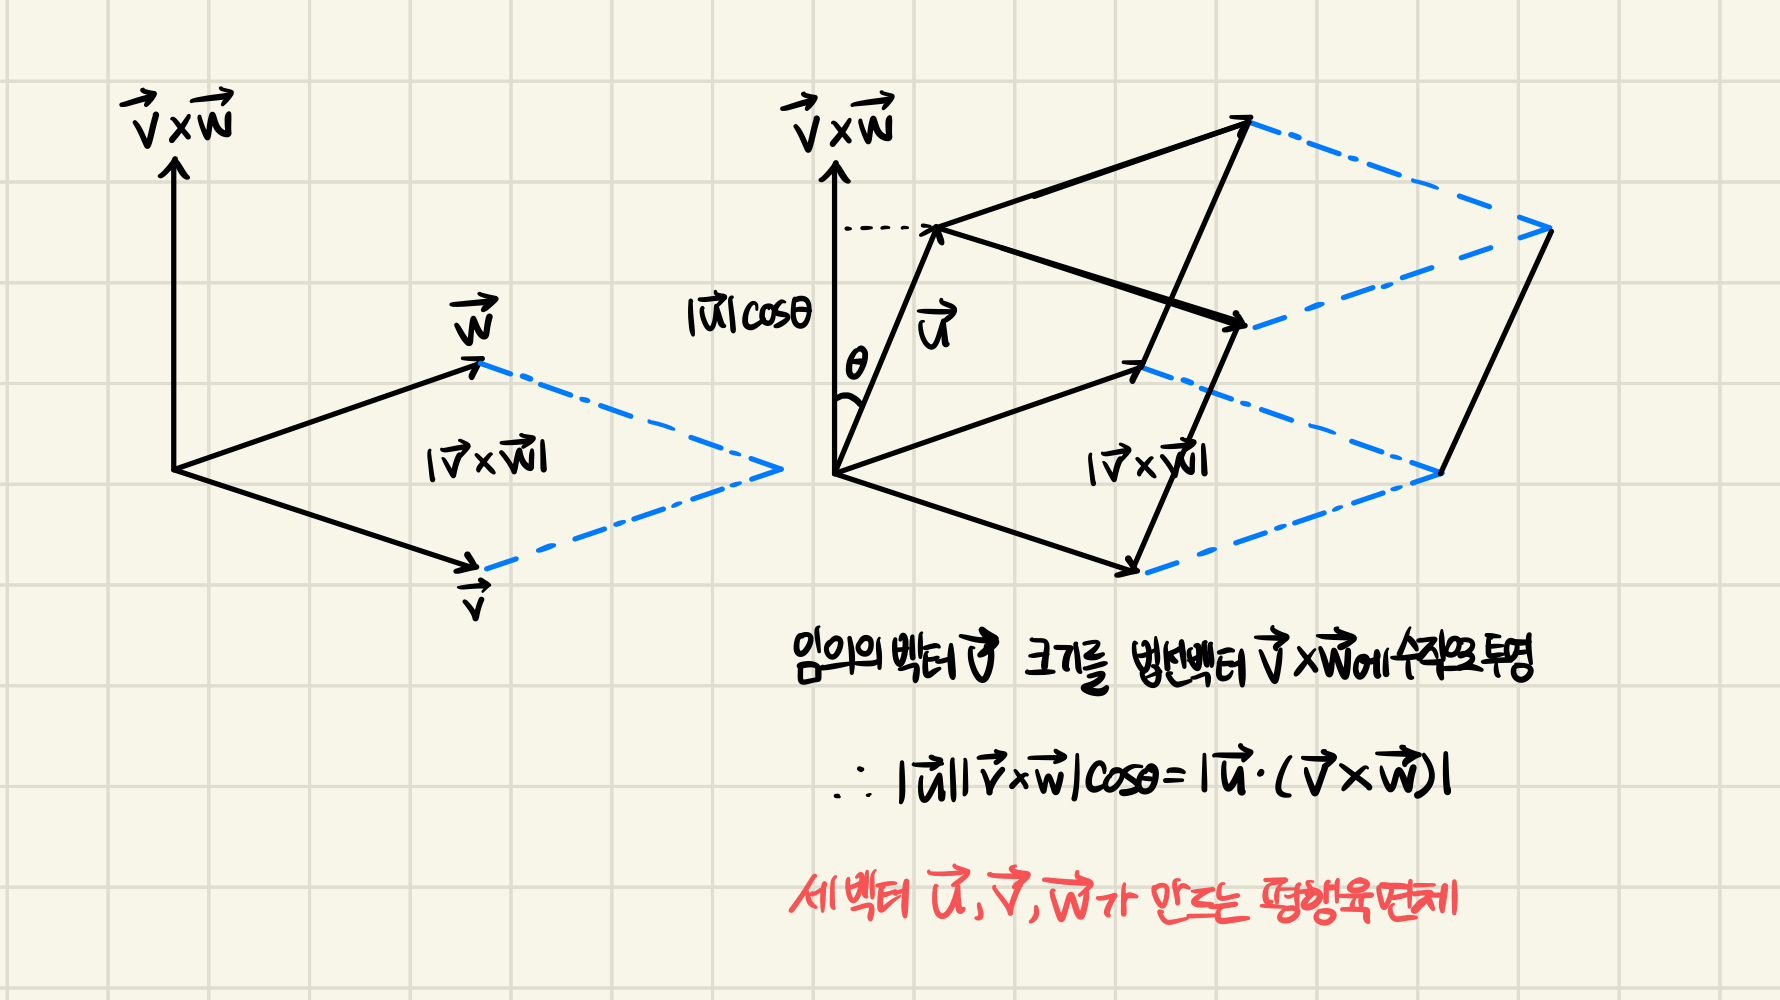 v⃗ × w⃗
w⃗
|v⃗ × w⃗|
v⃗
v⃗ × w⃗
|u⃗|cosθ
θ
u⃗
|v⃗ × w⃗|
임의의 벡터 v⃗ 크기를 법선벡터 v⃗ × w⃗에 수직으로 투영
∴ |u⃗||v⃗ × w⃗|cosθ = |u⃗ · (v⃗ × w⃗)|
세 벡터 u⃗, v⃗, w⃗가 만드는 평행육면체